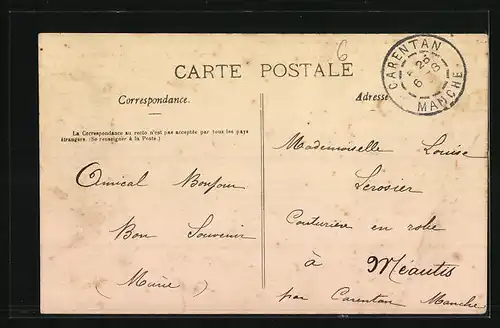 6
CARTE POSTALE
CARENTAN
MANCHE
Correspondance.
Adresse
La Correspondance au recto n'est pas acceptée par tous les pays
étrangers. (Se renseigner à la Poste.)
Amical Bonjour
Bon Souvenir
(Marie)
Mademoiselle Louise
Lerosier
Couturière en robe
à Méautis
par Carentan Manche